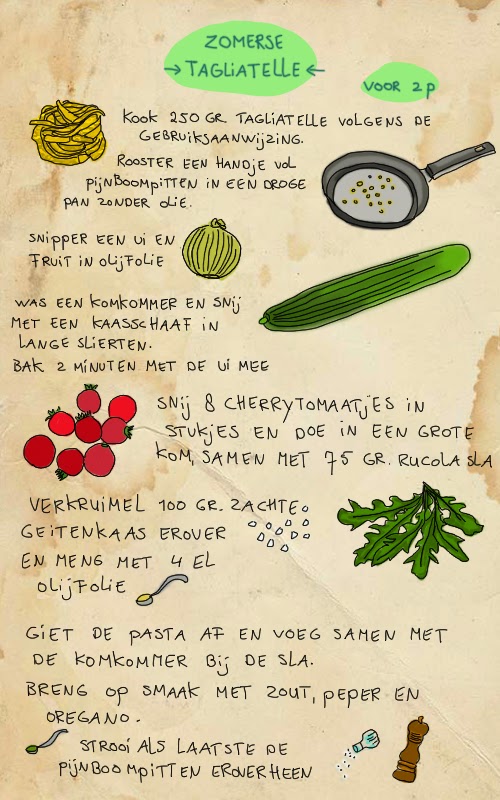 ZOMERSE
→ TAGLIATELLE ←
VOOR 2p
KOOK 250 GR. TAGLIATELLE VOLGENS DE
GEBRUIKSAANWIJZING.
ROOSTER EEN HANDJE VOL
PIJNBOOMPITTEN IN EEN DROGE
PAN ZONDER OLIE.
SNIPPER EEN UI EN
FRUIT IN OLIJFOLIE
WAS EEN KOMKOMMER EN SNIJ
MET EEN KAASSCHAAF IN
LANGE SLIERTEN.
BAK 2 MINUTEN MET DE UI MEE
SNIJ 8 CHERRYTOMAATJES IN
STUKJES EN DOE IN EEN GROTE
KOM, SAMEN MET 75 GR. RUCOLA SLA
VERKRUIMEL 100 GR. ZACHTE
GEITENKAAS EROVER
EN MENG MET 4 EL
OLIJFOLIE
GIET DE PASTA AF EN VOEG SAMEN MET
DE KOMKOMMER BIJ DE SLA.
BRENG OP SMAAK MET ZOUT, PEPER EN
OREGANO.
STROOI ALS LAATSTE DE
PIJNBOOMPITTEN EROVERHEEN